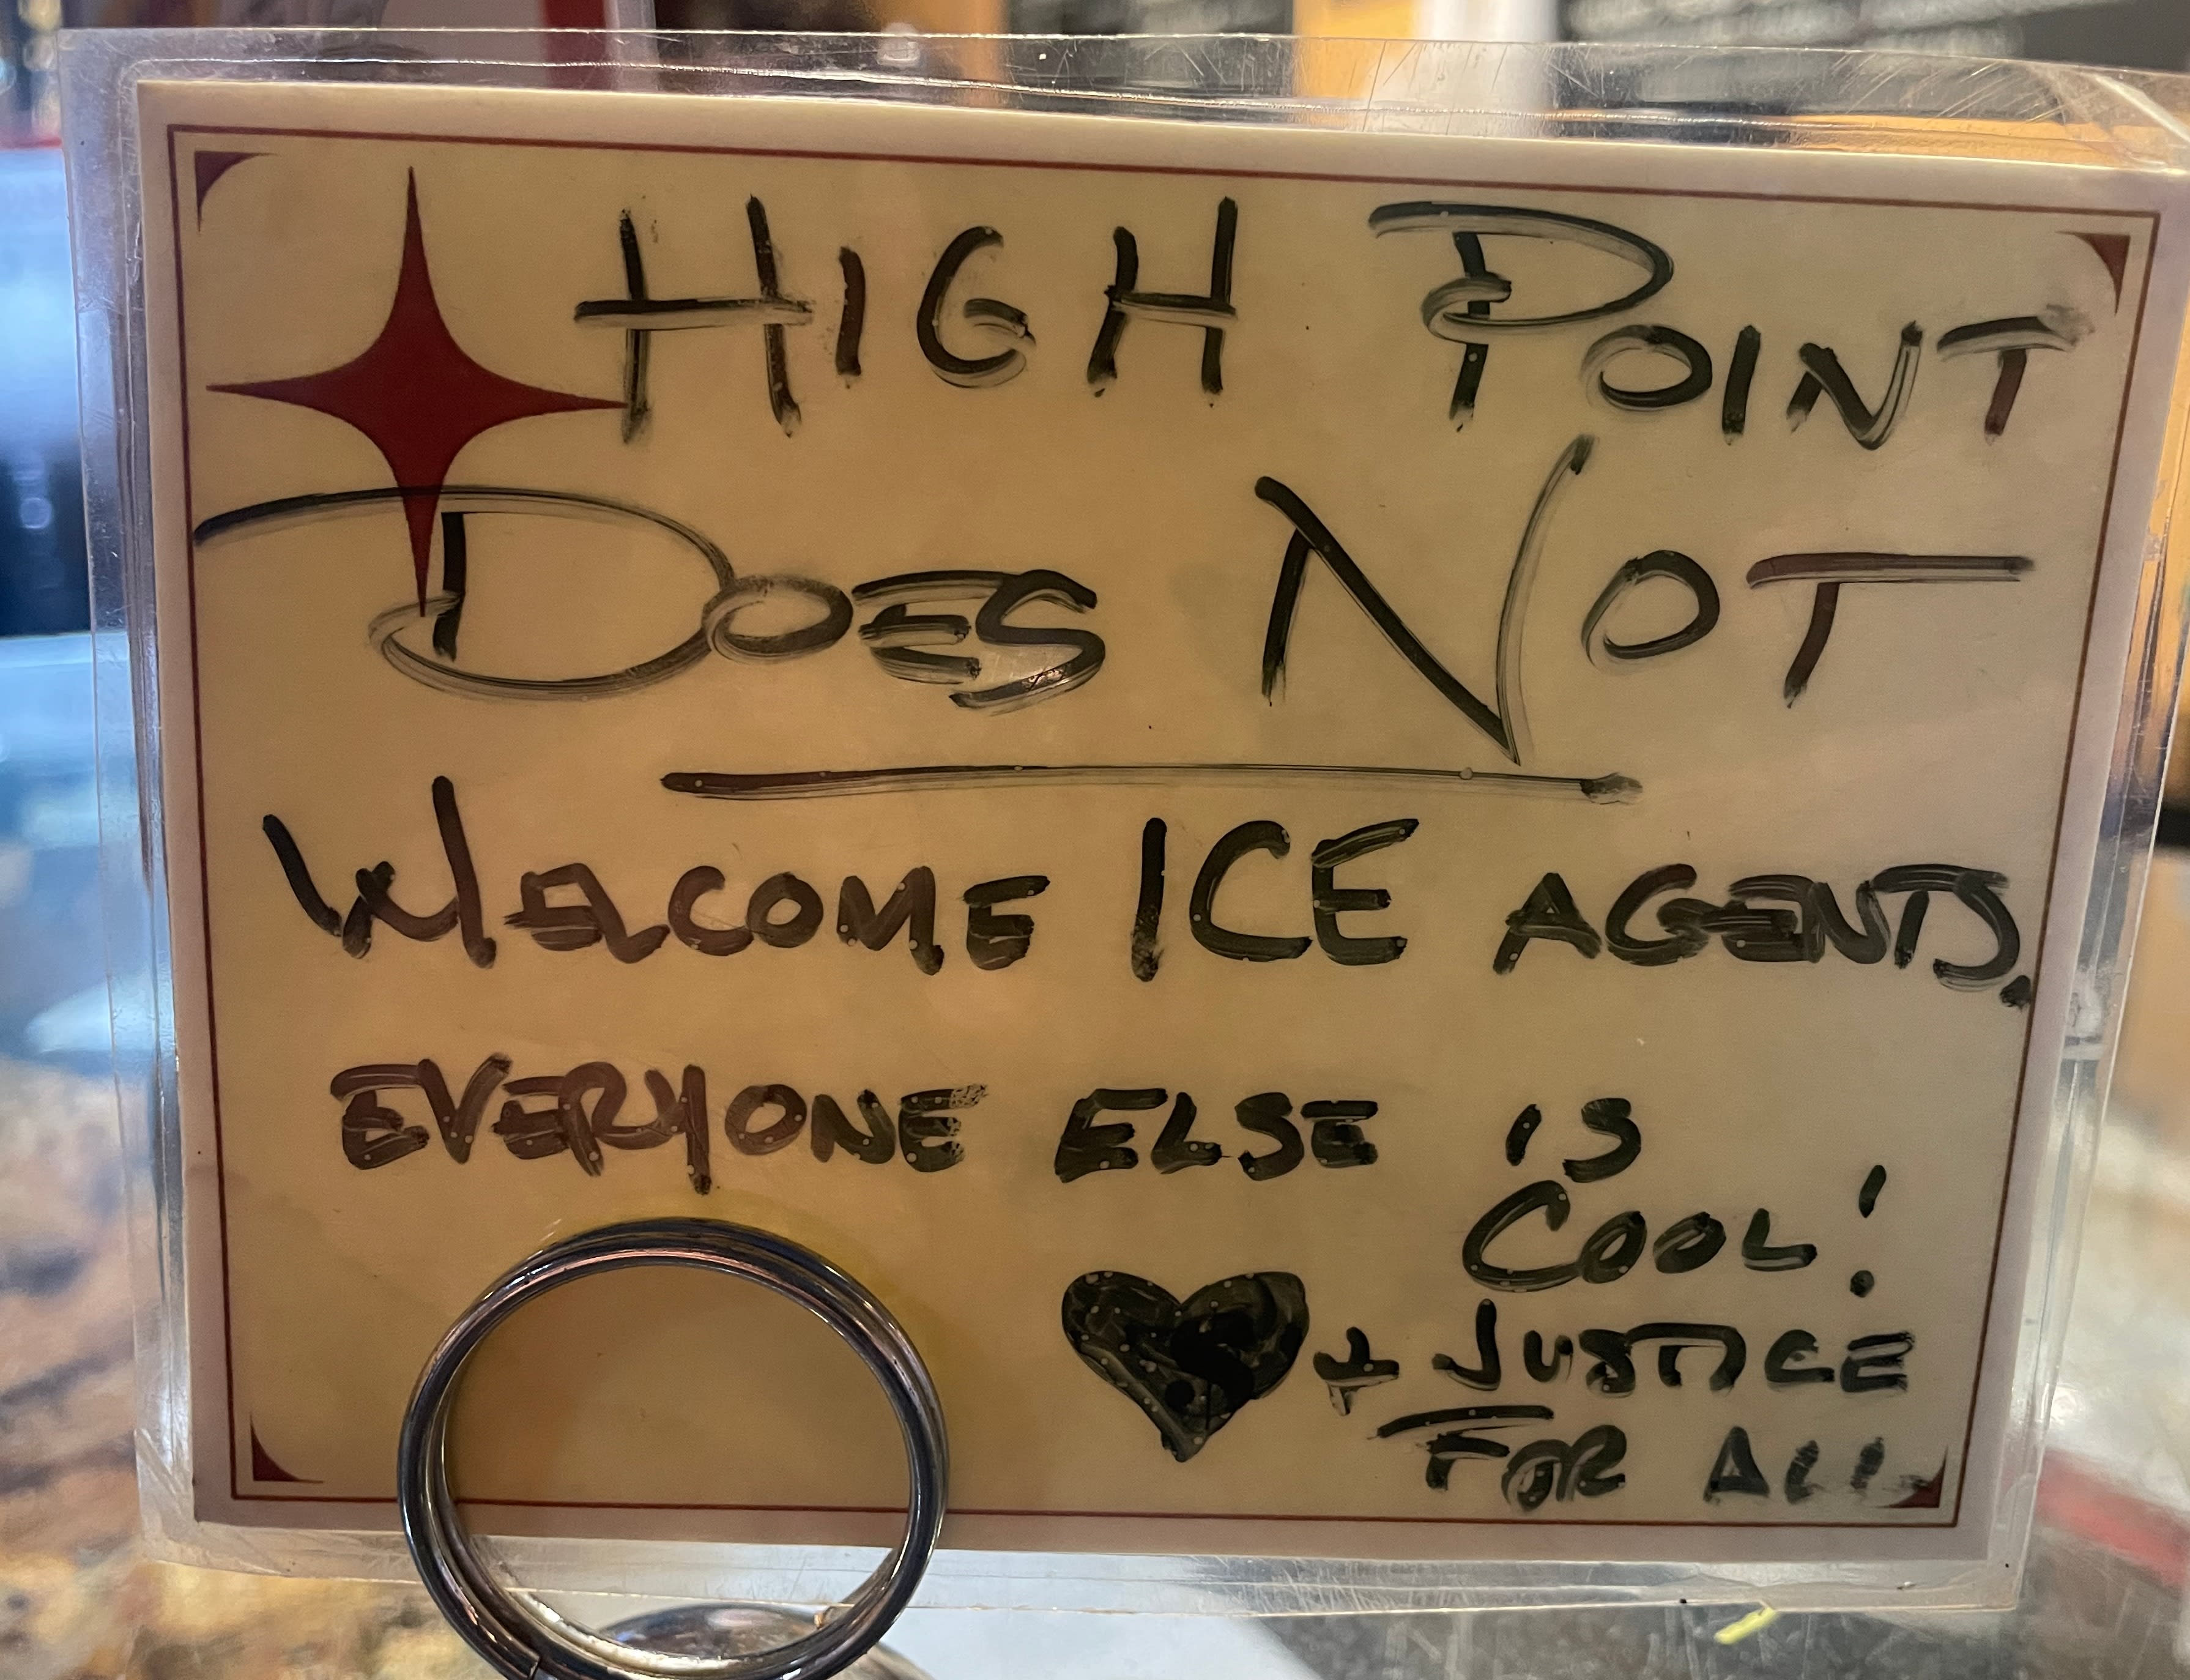 HIGH POINT
DOES NOT
WELCOME ICE AGENTS.
EVERYONE ELSE IS
COOL!
+ JUSTICE
FOR ALL